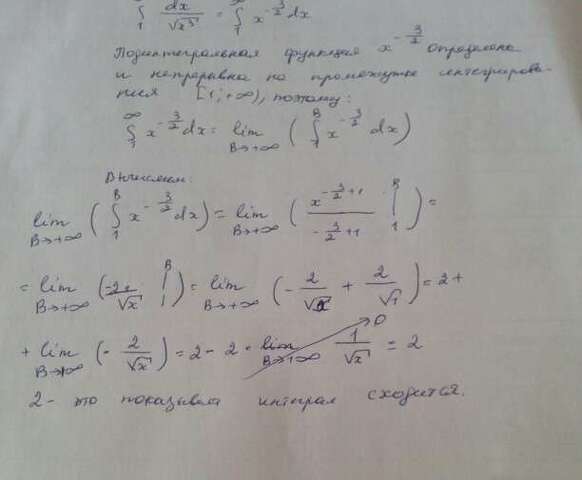 ∫₁ dx/√x³ = ∫₁ x^(-3/2) dx
Подинтегральная функция x^(-3/2) определена
и непрерывна на промежутке интегрирова-
ния [1; +∞), поэтому:
∫₁^∞ x^(-3/2) dx = lim_(B→+∞) (∫₁^B x^(-3/2) dx)
Вычислим:
lim_(B→+∞) (∫₁^B x^(-3/2) dx) = lim_(B→+∞) (x^(-3/2+1)/(-3/2+1) |₁^B) =
= lim_(B→+∞) (-2/√x |₁^B) = lim_(B→+∞) (-2/√x + 2/√1) = 2 +
+ lim_(B→+∞) (-2/√x) = 2 - 2 · lim_(B→+∞) 1/√x → 0 = 2
2 - это показывая интеграл сходится.